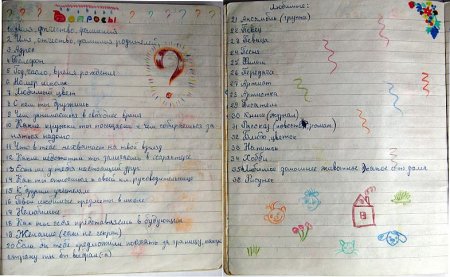 Вопросы
1. Имя, отчество, фамилия
2. Имя, отчество, фамилия родителей
3. Адрес
4. Телефон
5. Год, число, время рождения
6. Номер школы
7. Любимый цвет
8. С кем ты дружишь
9. Чем занимаешься в свободное время
10. Какие кружки ты посещаешь и чем собираешься за
няться
11. Что в тебе
12. Какие недостатки ты замечаешь в
13. Есть ли у тебя настоящий друг
14. Как ты относишься к своей кл. руководительнице
15. К другим учителям
16. Твои любимые предметы в школе
17. Нелюбимые
18. Как ты себя представляешь в будущем
19. Желание (если не секрет)
20. Если бы тебе предложили поехать за границу, какую
страну ты выбрал(а)
Любимые:
21 Ансамбль (группа)
22 Певец
23 Певица
24 Песня
25 Фильм
26 Передача
27 Артист
28 Артистка
29 Писатель
30 Книга (журнал)
31 Рассказ (повесть, роман)
32 Блюдо, цветок
33 Напиток
34 Хобби
35 Любимое домашнее животное есть дома
36 Рисунок